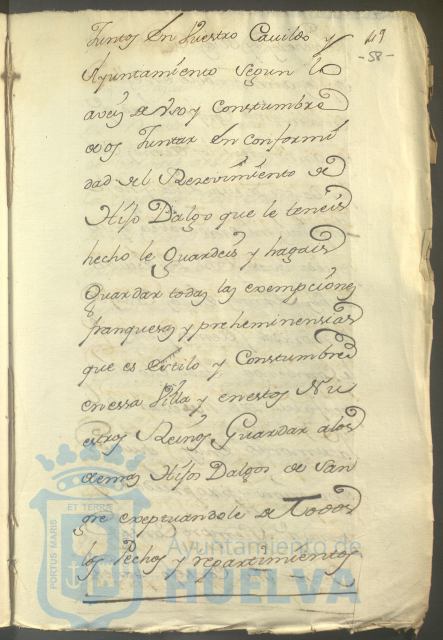 Juntos En Vuestro Cavildo y
Ayuntamiento segun lo
aveis de Vso y Constumbre
de os Juntar En conformi
dad del Rezevimiento de
Hijo Dalgo que le teneis
hecho le Guardeis y hagais
Guardar todas las exempciones
franquesas y preheminensias
que es Estilo y Constumbre
en essa Villa y en estos Nu
estros Reinos Guardar a los
demas Hijos Dalgos de San
gre exeptuandole de Todos
los Pechos y repartimientos
49
-58-
PORTUS MARIS ET TERRAE
Ayuntamiento de
HUELVA